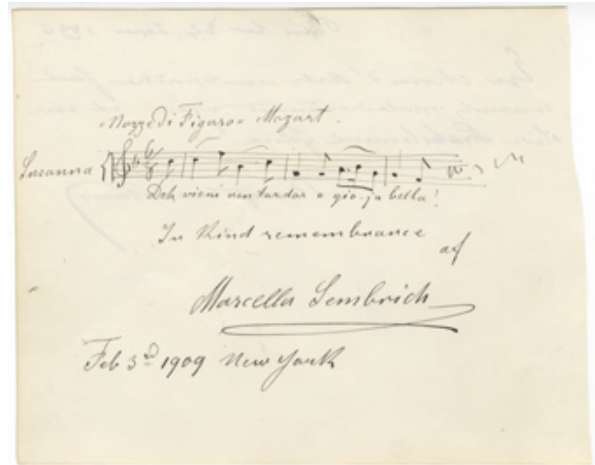 "Nozze di Figaro" Mozart.
Susanna
Deh vieni non tardar o gio-ja bella!
In Kind remembrance
of
Marcella Sembrich
Feb 3rd 1909 New York